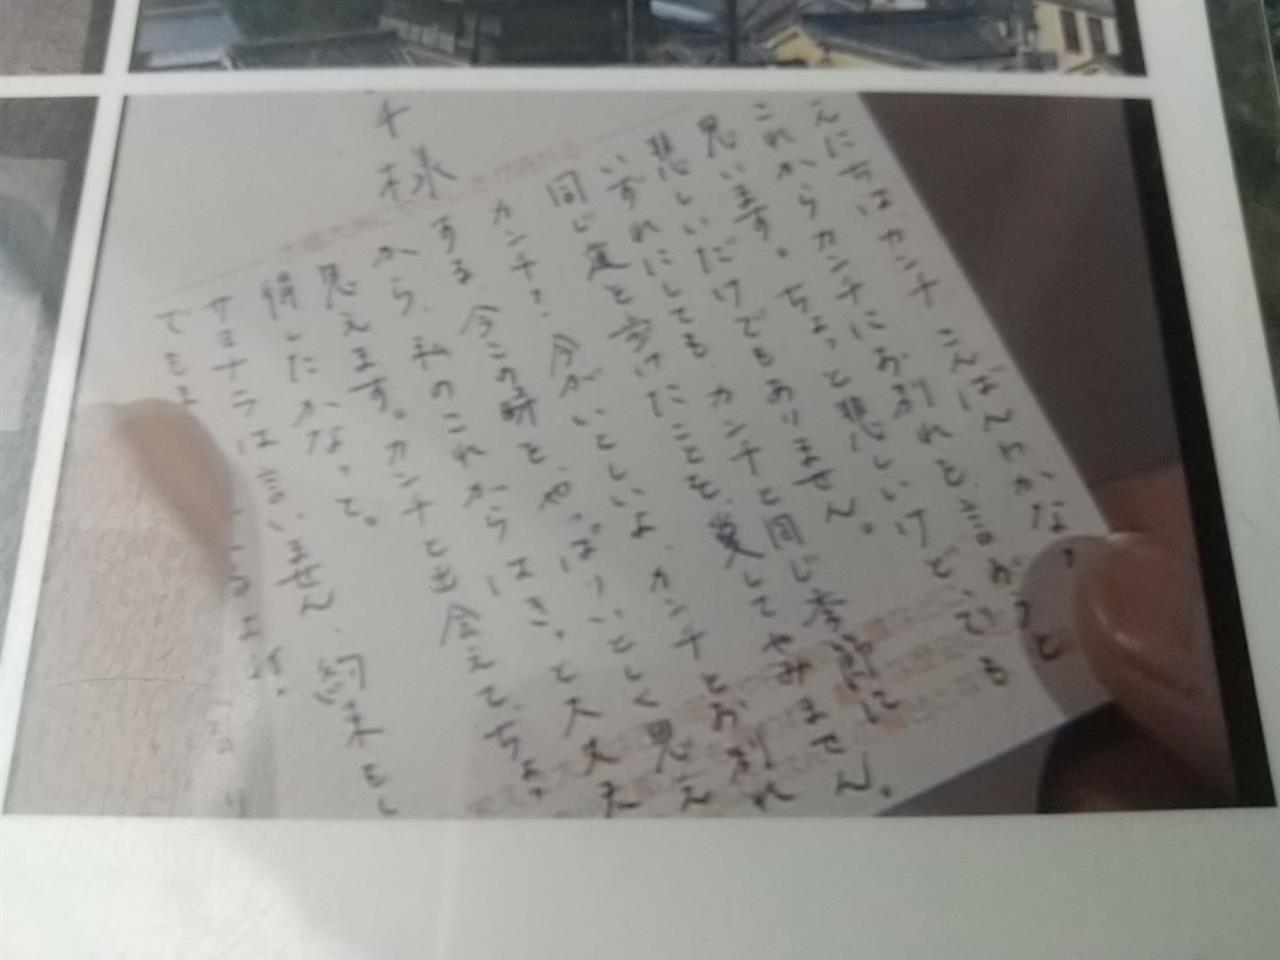 えにちは カンチ こんばんわかな、
これからカンチにお別れを言おうと
思います。ちょっと悲しいけど、でも
悲しいだけでもありません。
いずれにしても、カンチと同じ季節に
同じ道を歩けたことを、愛してやみません。
カンチ?今がいとしいよ、カンチとお別れ
する、今この時を、やっぱりいとしく思え
から、私のこれからはきっと大丈夫
思えます。カンチと出会えて、ちょっ
得したかなって。
サヨナラは言いません、約束もし
でもま
チ様